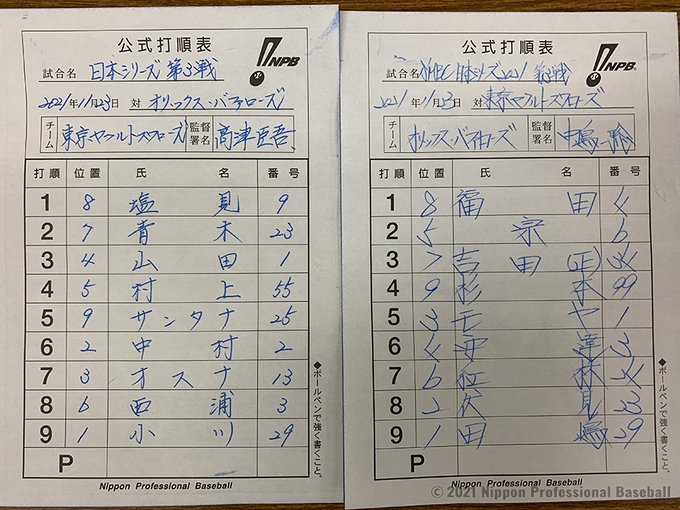 公式打順表
NPB
試合名 日本シリーズ 第3戦
2021年11月23日 対 オリックス・バファローズ
チーム 東京ヤクルトスワローズ 監督署名 高津臣吾
打順 位置 氏名 番号
1 8 塩見 9
2 7 青木 23
3 4 山田 1
4 5 村上 55
5 9 サンタナ 25
6 2 中村 2
7 3 オスナ 13
8 6 西浦 3
9 1 小川 29
P
◆ボールペンで強く書くこと。
Nippon Professional Baseball
公式打順表
NPB
試合名 日本シリーズ2021 第3戦
2021年11月23日 対 東京ヤクルトスワローズ
チーム オリックス・バファローズ 監督署名 中嶋 聡
打順 位置 氏名 番号
1 8 福田
2 5 宗 6
3 7 吉田(正)
4 9 杉本 99
5 3 モヤ 1
6 4 安達 3
7 6 紅林
8 2 伏見 23
9 1 田嶋 29
P
◆ボールペンで強く書くこと。
Nippon Professional Baseball
© 2021 Nippon Professional Baseball